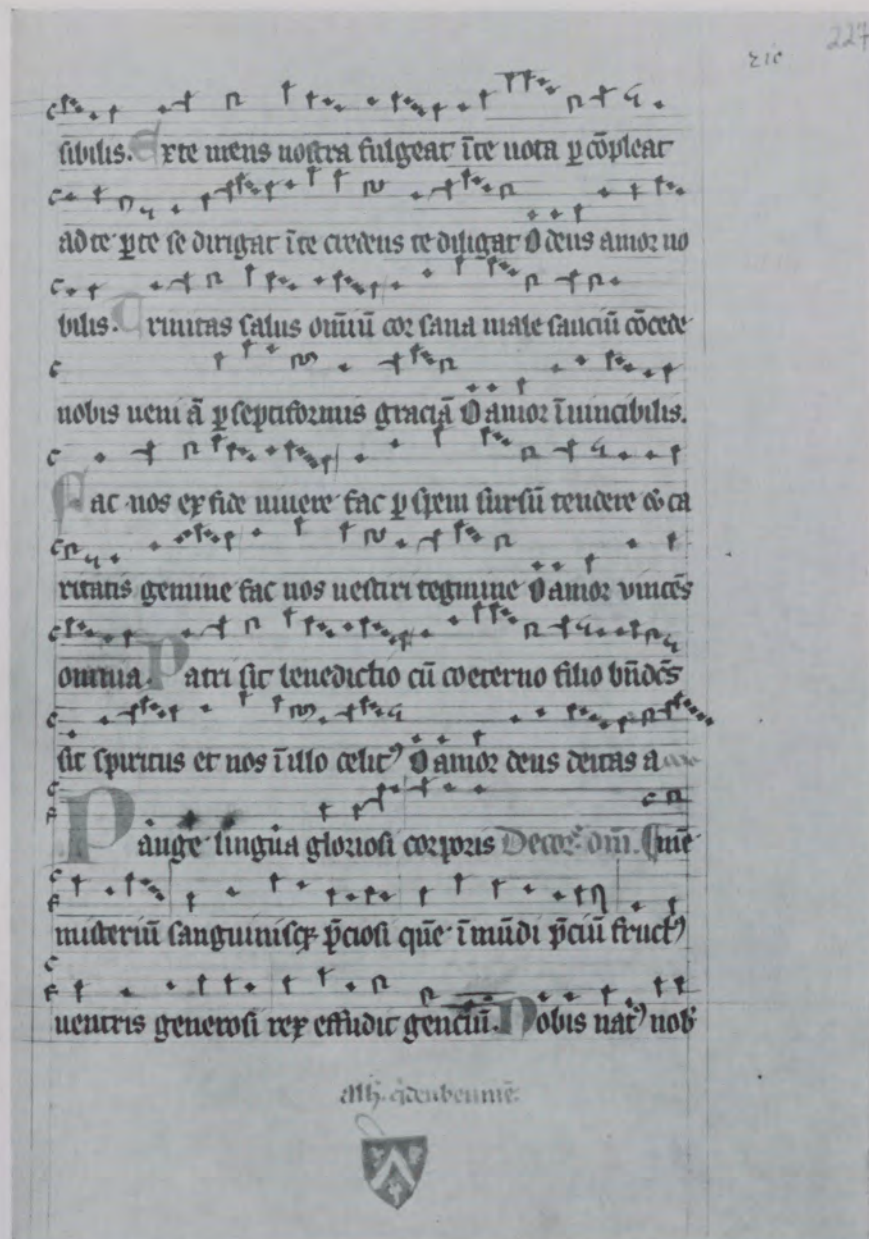 227
sibilis. Ex te mens nostra fulgeat ĩ te uota p cõpleat
ad te p te se dirigat ĩ te credens te diligat O deus amor no
bilis. Trinitas salus om̃iũ cor sana male sauciũ cõcede
nobis ueniã p septiformis graciã O amor ĩuincibilis.
Fac nos ex fide uiuere fac p spem sursũ tendere
ritatis gemine fac nos uestiri tegmine O amor vincẽs
omnia. Patri sit benedictio cũ coeterno filio bñdc̃s
sit spiritus et nos ĩ illo celitꝰ O amor deus deitas a
Pange lingua gloriosi corporis
misteriũ sanguinisqꝫ p̃ciosi quẽ ĩ mũdi p̃ciũ fructꝰ
uentris generosi rex effudit genciũ. Nobis natꝰ nob̾